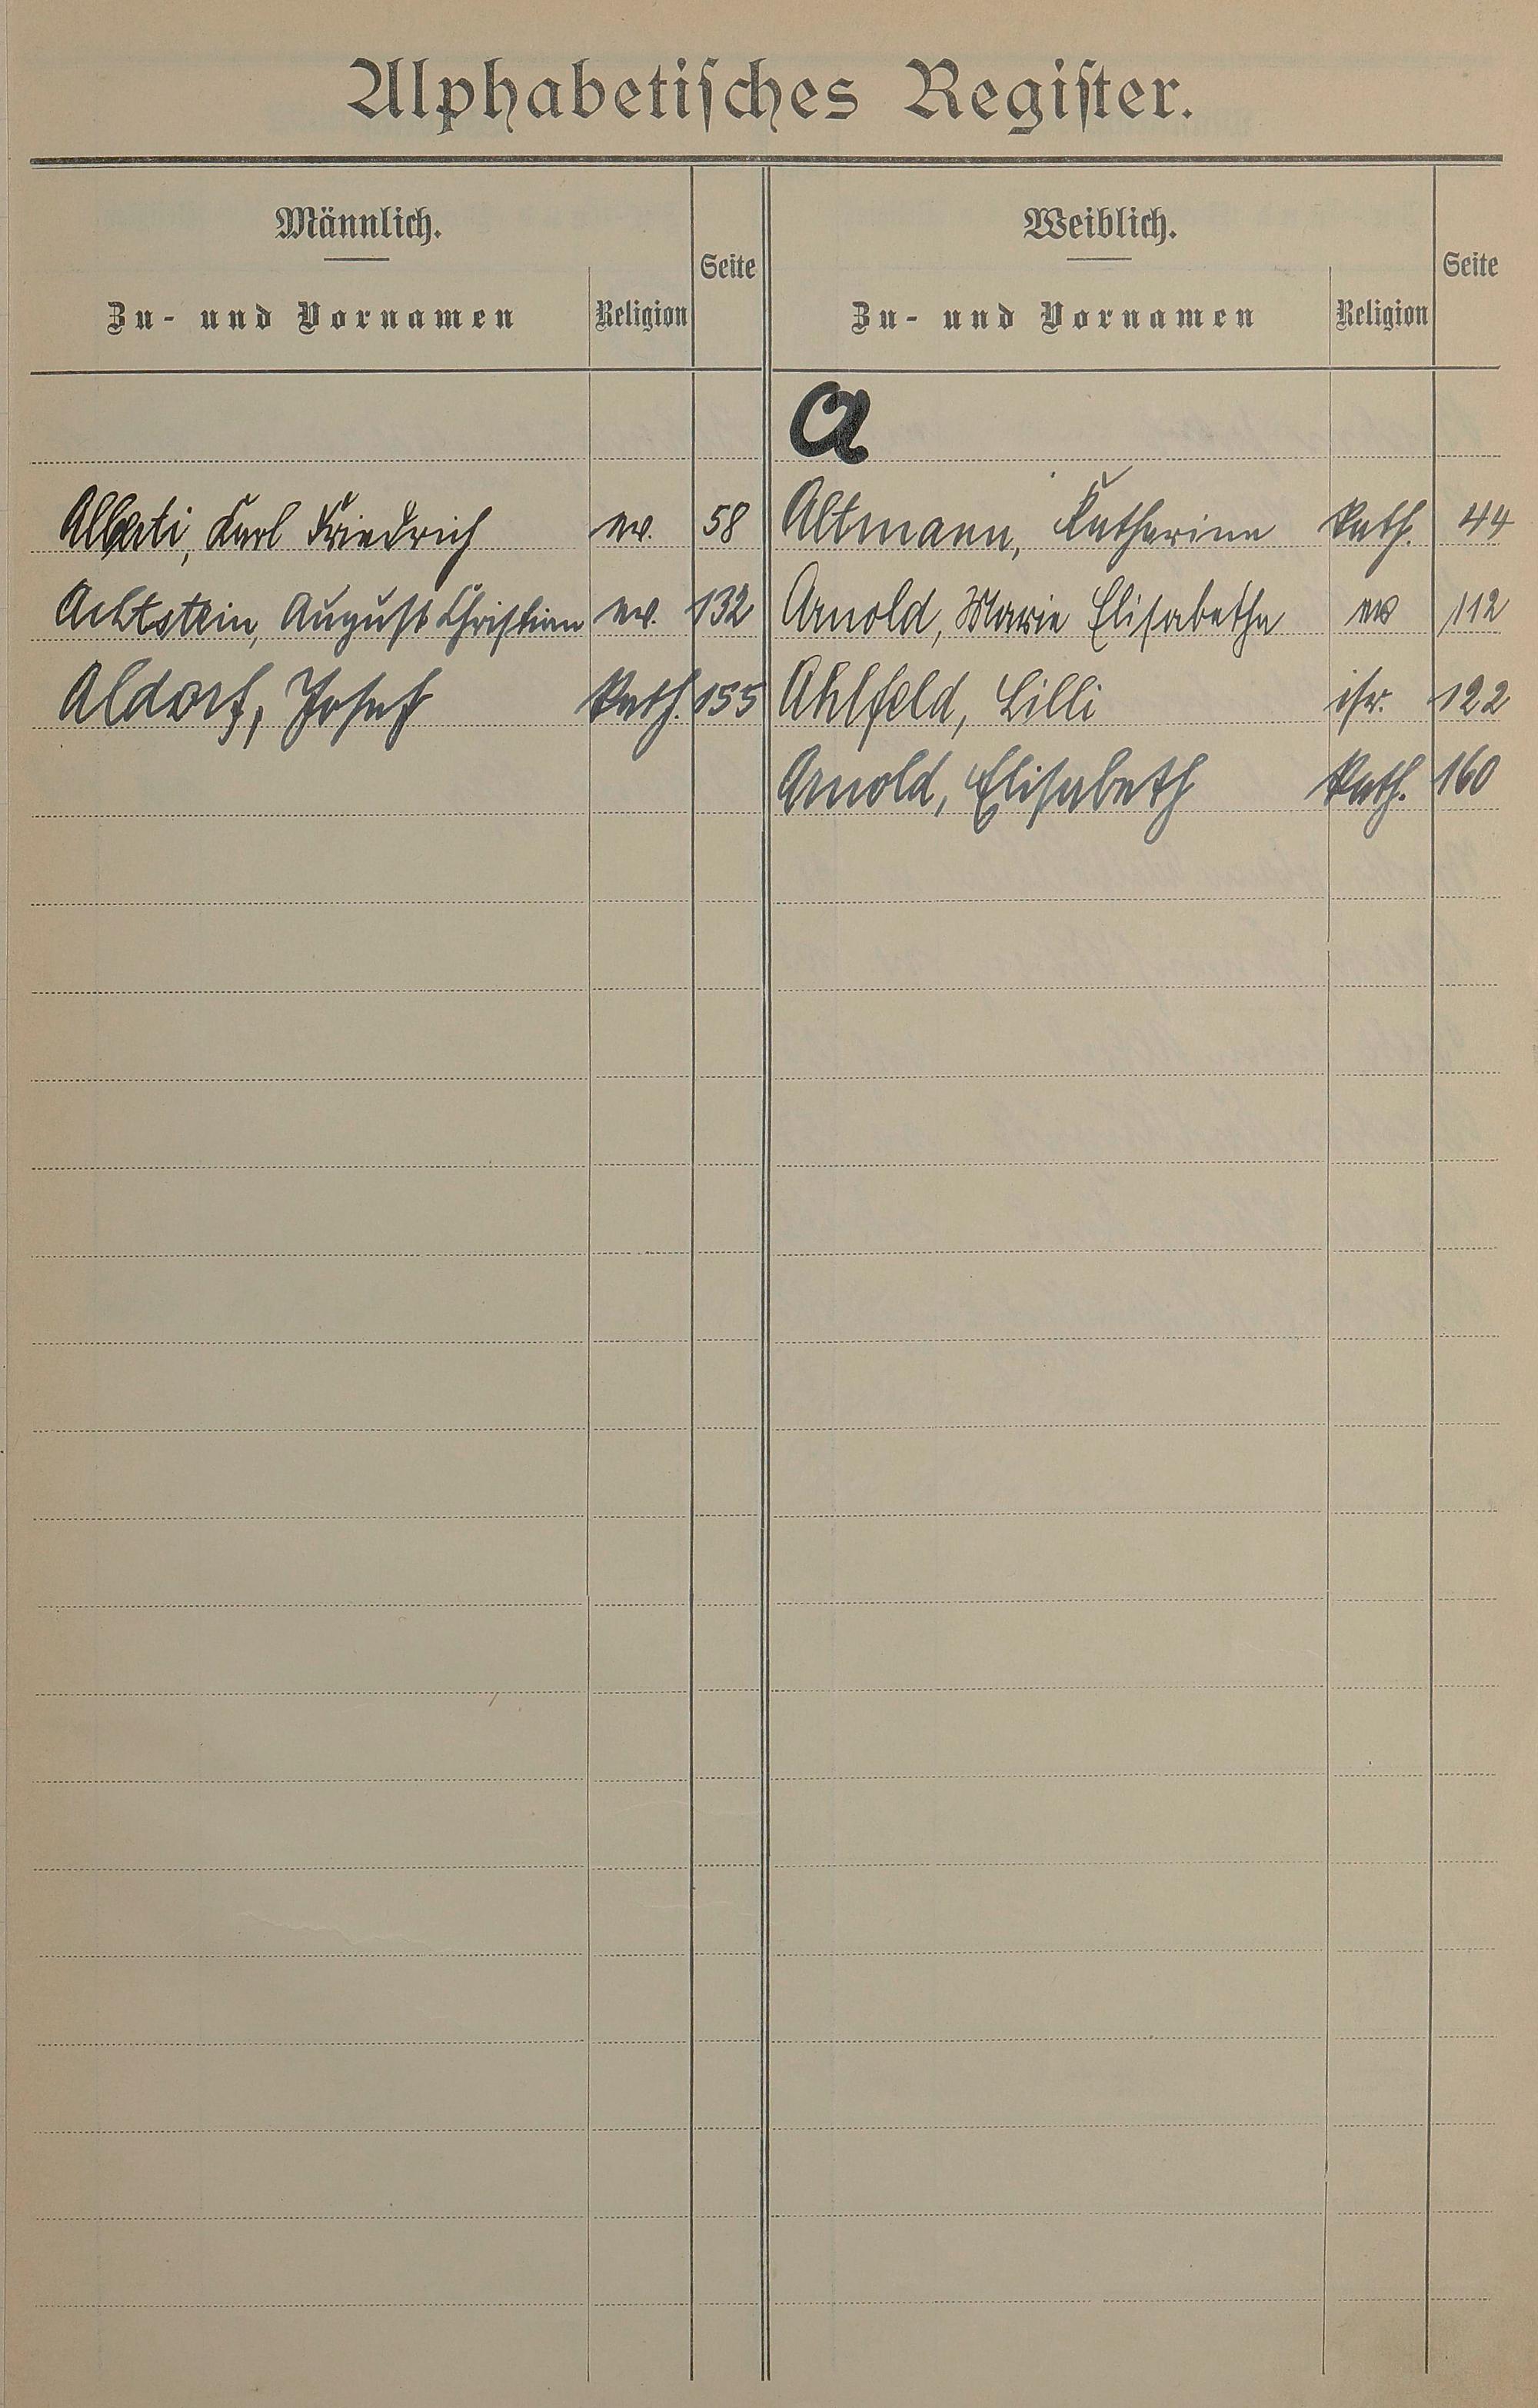 Alphabetiſches Regiſter.
Männlich. Seite Weiblich. Seite
Zu- und Vornamen Religion Zu- und Vornamen Religion
A
Alberti, Karl Friedrich ev. 58 Altmann, Katharina kath. 44
Achtstein, August Christian ev. 132 Arnold, Marie Elisabetha ev 112
Aldorf, Josef kath. 155 Ahlfeld, Lilli isr. 122
Arnold, Elisabeth kath. 160